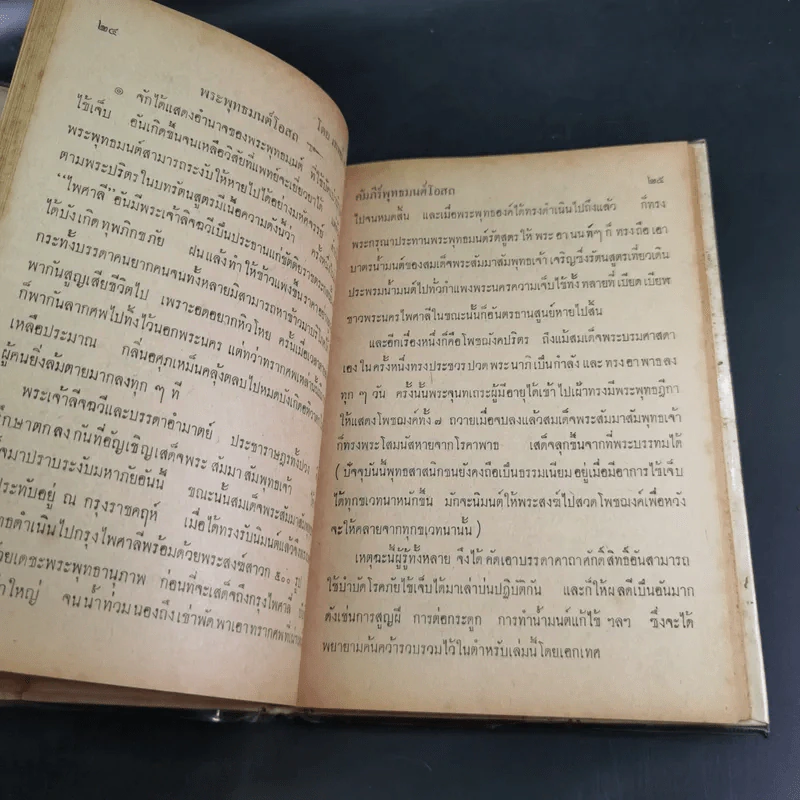 ๒๔
พระพุทธมนต์โอสถ โดย
๑ จักได้แสดงอำนาจของพระพุทธมนต์ ที่ใช้บำบัด
ไข้เจ็บ อันเกิดขึ้นจนเหลือวิสัยที่แพทย์จะเยียวยาได้
พระพุทธมนต์สามารถระงับให้หายไปได้อย่างมหัศจรรย์
ตามพระปริตรในบทรัตนสูตรมีเนื้อความดังนี้ว่า ครั้งหนึ่ง
“ไพศาลี” อันมีพระเจ้าลิจฉวีเป็นประธานแก่ขัตติยราชตระกูล
ได้บังเกิดทุพภิกขภัย ฝนแล้งทำให้ข้าวแพงขึ้นราคาอย่าง
กระทั่งบรรดาคนยากคนจนทั้งหลายมิสามารถหาข้าวมา
พากันสูญเสียชีวิตไป เพราะอดอยากหิวโหย ครั้นเมื่อ
ก็พากันลากศพไปทิ้งไว้นอกพระนคร แต่ทว่าทรากศพเหล่านั้น
เหลือประมาณ กลิ่นอศุภเหม็นคลุ้งตลบไปหมดบังเกิด
ผู้คนยิ่งล้มตายมากลงทุก ๆ ที
พระเจ้าลิจฉวีและบรรดาอำมาตย์ ประชาราษฎรทั้งปวง
ศึกษาตกลงกันที่อัญเชิญเสด็จพระสัมมาสัมพุทธเจ้า
มาปราบระงับมหาภัยอันนี้ ขณะนั้นสมเด็จพระสัมมาสัม
ประทับอยู่ ณ กรุงราชคฤห์ เมื่อได้ทรงรับนิมนต์แล้วจึง
ดำเนินไปกรุงไพศาลีพร้อมด้วยพระสงฆ์สาวก ๕๐๐ รูป
ด้วยเดชะพระพุทธานุภาพ ก่อนที่จะเสด็จถึงกรุงไพศาลี
ใหญ่ จนน้ำท่วมนองถึงเข่าพัดพาเอาทรากศพที่เน่า
คัมภีร์พุทธมนต์โอสถ ๒๕
ไปจนหมดสิ้น และเมื่อพระพุทธองค์ได้ทรงดำเนินไปถึงแล้ว ก็ทรง
พระกรุณาประทานพระพุทธมนต์รัตสูตร ให้ พระ อานนท์ๆ ก็ ทรงถือ เอา
บาตรน้ำมนต์ของสมเด็จพระสัมมาสัมพุทธเจ้า เจริญซึ่งรัตนสูตรเที่ยวเดิน
ประพรมน้ำมนต์ไปทั่วกำแพงพระนครความเจ็บไข้ทั้งหลายที่เบียดเบียฬ
ชาวพระนครไพศาลีในขณะนั้นก็อันตรธานสูญหายไปสิ้น
และอีกเรื่องหนึ่งก็คือโพชฌังคปริตร ถึงแม้สมเด็จพระบรมศาสดา
เอง ในครั้งหนึ่งทรงประชวรปวดพระนาภีเป็นกำลัง และทรงอาพาธลง
ทุก ๆ วัน ครั้งนั้นพระจุนทเถระผู้มีอายุได้เข้าไปเฝ้าทรงมีพระพุทธฎีกา
ให้แสดงโพชฌงค์ทั้ง ๗ ถวายเมื่อจบลงแล้วสมเด็จพระสัมมาสัมพุทธเจ้า
ก็ทรงพระโสมนัสหายจากโรคาพาธ เสด็จลุกขึ้นจากที่พระบรรทมได้
( ปัจจุบันนี้พุทธสาสนิกชนยังคงถือเป็นธรรมเนียม อยู่เมื่อมีอาการไข้เจ็บ
ได้ทุกขเวทนาหนักขึ้น มักจะนิมนต์ให้พระสงฆ์ไปสวดโพชฌงค์เพื่อหวัง
จะให้คลายจากทุกขเวทนานั้น )
เหตุฉะนี้ผู้รู้ทั้งหลาย จึงได้ คัดเอาบรรดาคาถาศักดิ์สิทธิ์อันสามารถ
ใช้บำบัดโรคภัยไข้เจ็บได้มาเล่าบ่นปฏิบัติกัน และก็ให้ผลดีเป็นอันมาก
ดังเช่นการสูญฝี การต่อกระดูก การทำน้ำมนต์แก้ไข้ ฯลฯ ซึ่งจะได้
พยายามค้นคว้ารวบรวมไว้ในตำหรับเล่มนี้โดยเอกเทศ